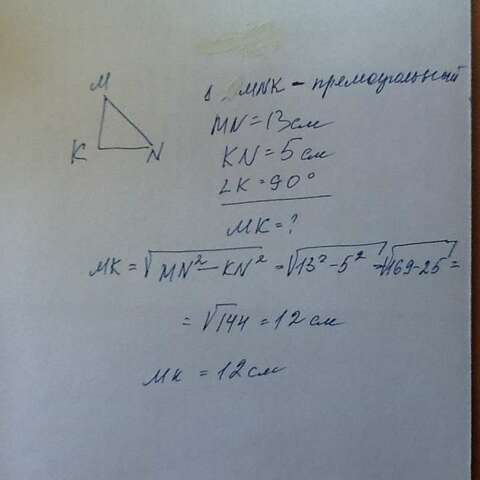 M
Δ MNK - прямоугольный
MN = 13 см
K N
KN = 5 см
∠K = 90°
MK = ?
MK = √MN² - KN² = √13² - 5² = √169 - 25 =
= √144 = 12 см
MK = 12 см